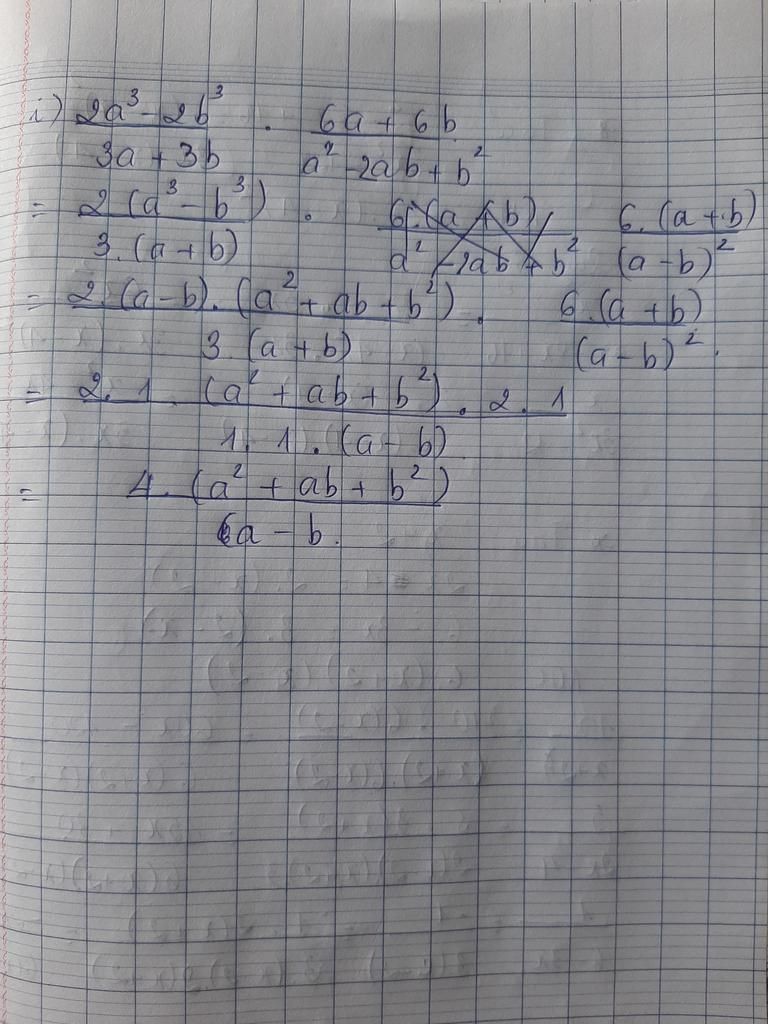 i) 2a³ - 2b³ . 6a + 6b
3a + 3b a² - 2ab + b²
= 2.(a³ - b³) . 6.(a + b) 6.(a + b)
3.(a + b) a² - 2ab + b² (a - b)²
= 2.(a - b).(a² + ab + b²) . 6.(a + b)
3.(a + b) (a - b)².
= 2. 1. (a² + ab + b²) . 2. 1
1. 1.(a - b)
= 4.(a² + ab + b²)
a - b.